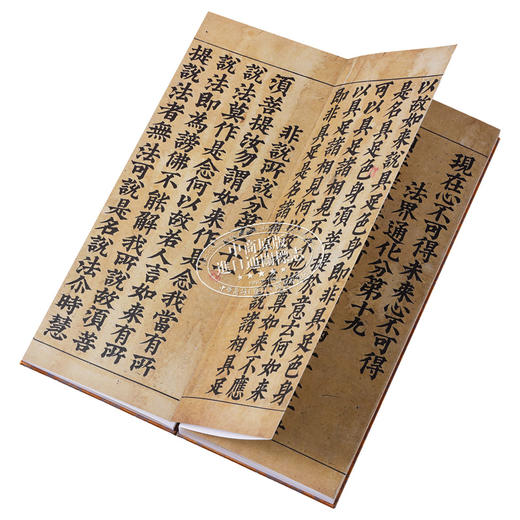 現在心不可得未來心不可得
法界通化分第十九
以故如來說具足色身即非具足色身
是名具足色身須菩提於意云何如來
可以具足諸相見不不也世尊如來不應
以具足諸相見何以故如來說諸相具足
即非具足是名諸
非說所說分第
須菩提汝勿謂如來作是念我當有所
說法莫作是念何以故若人言如來有所
說法即為謗佛不能解我所說故須菩
提說法者無法可說是名說法尒時慧
中商原版